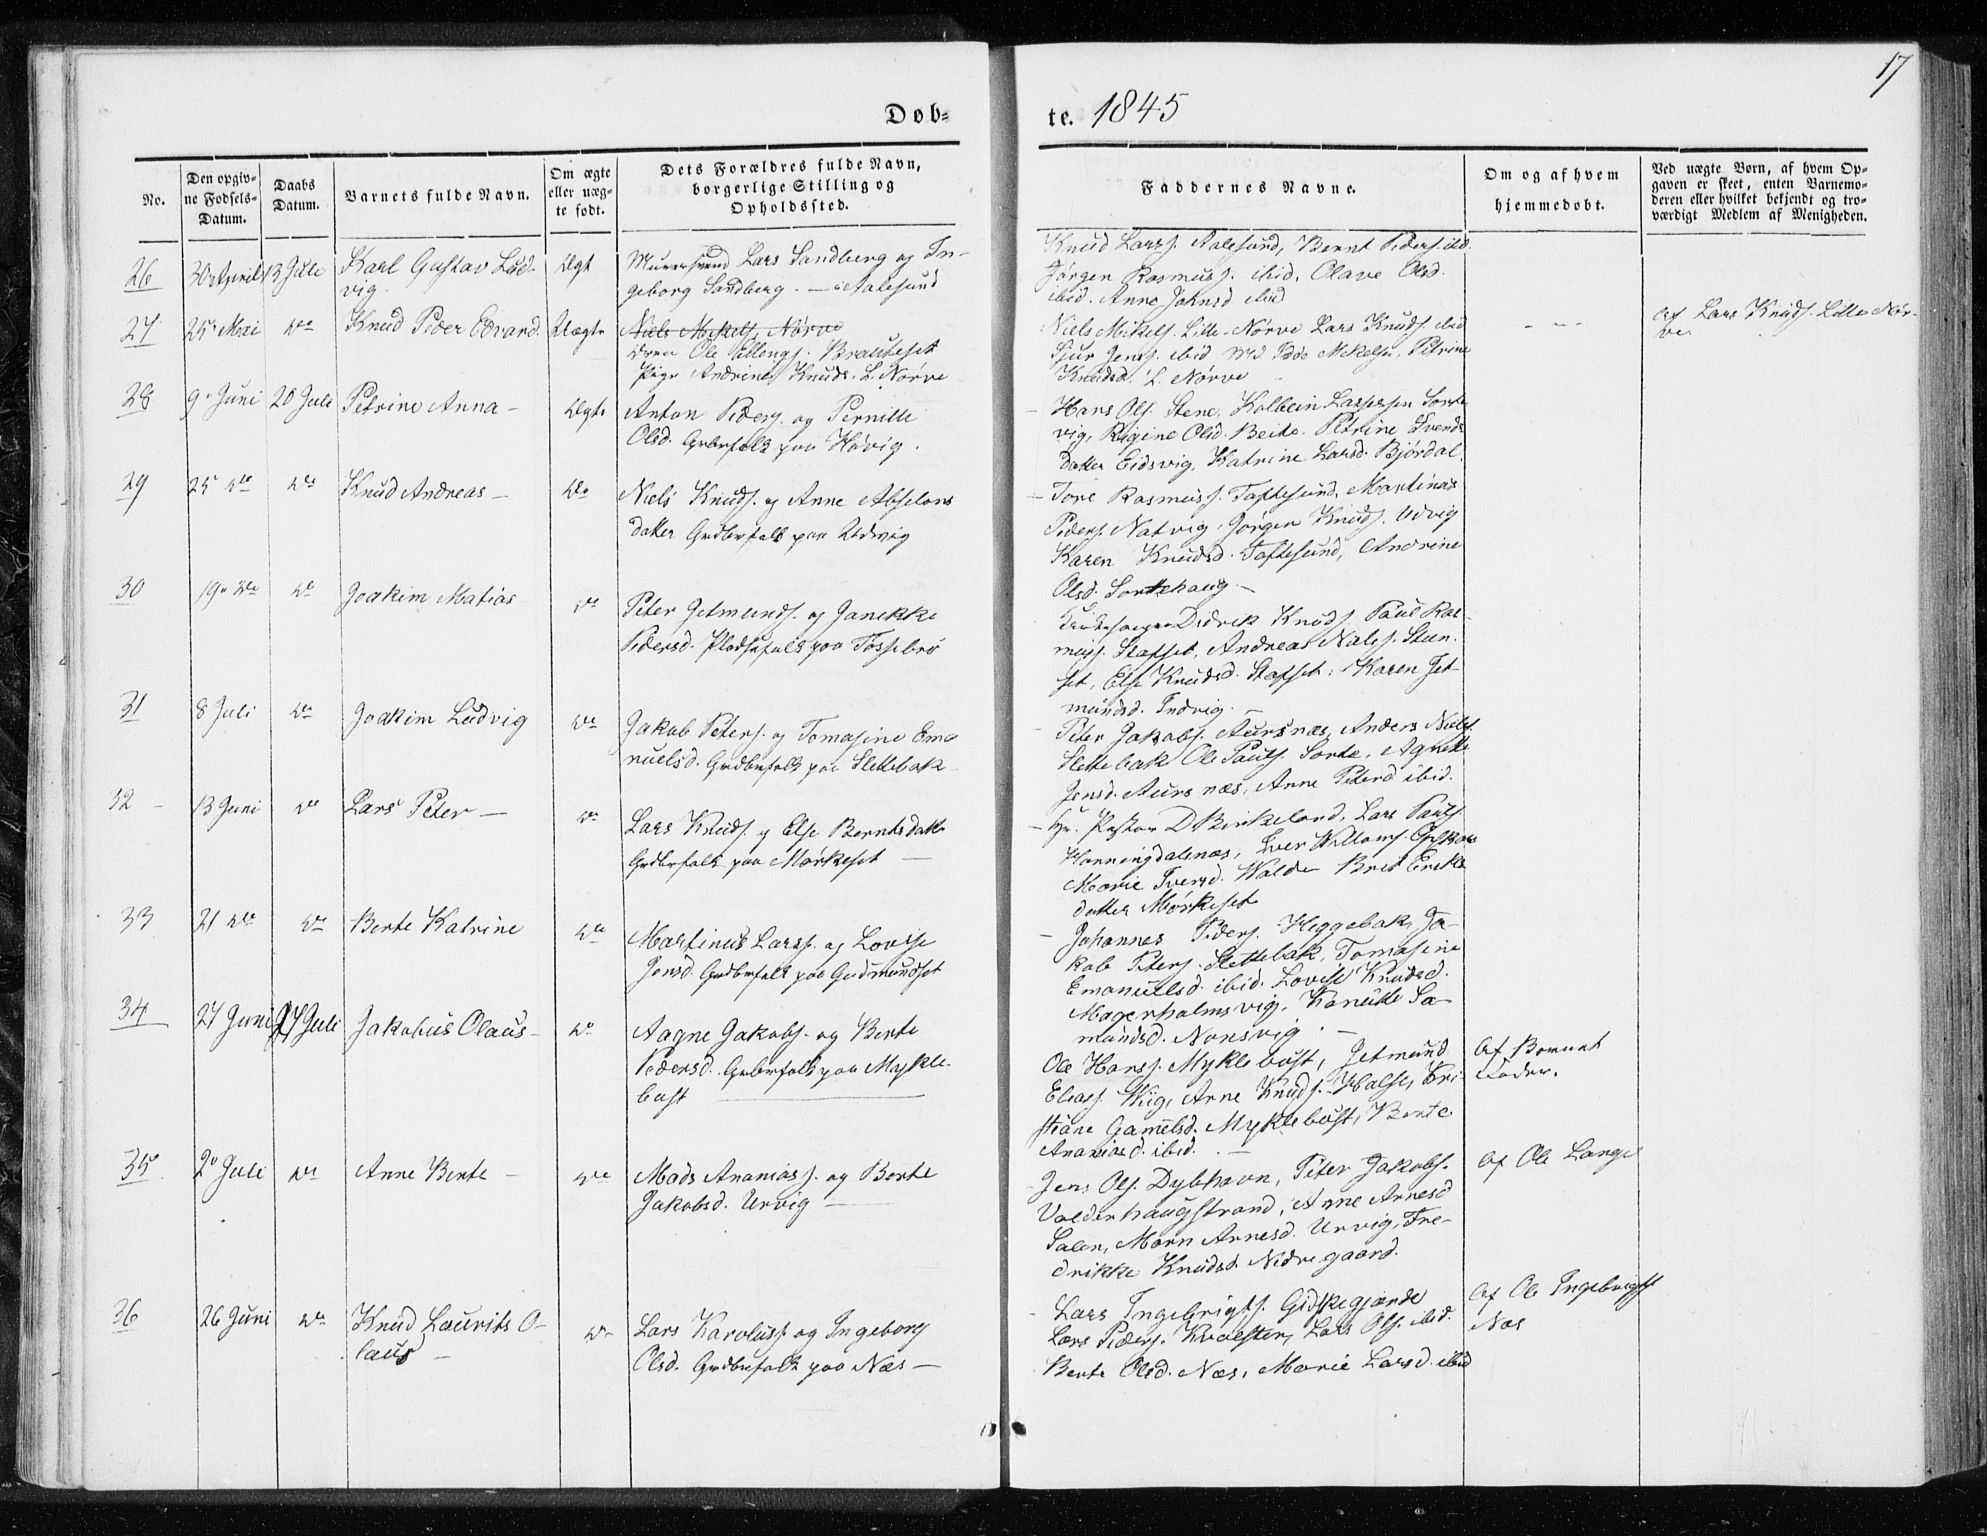 17
Døb-
te. 1845
No.
Den opgiv-
ne Fødsels-
Datum.
Daabs
Datum.
Barnets fulde Navn.
Om ægte
eller uæg-
te født.
Dets Forældres fulde Navn,
borgerlige Stilling og
Opholdssted.
Faddernes Navne.
Om og af hvem
hjemmedøbt.
Ved uægte Børn, af hvem Op-
gaven er skeet, enten Barnemo-
deren eller hvilket bekjendt og tro-
værdigt Medlem af Menigheden.
26
30 April
13 Julie
Karl Gustav Lud-
vig
Ægt
Muursvend Lars Sandberg og In-
geborg Sandberg - i Aalesund
Knud Larss. Aalesund, Bernt Peders. ibd.
Jørgen Rasmuss. ibid, Olave Olsd.
ibid. Anne Johnsd ibid
27
25 Mai
do
Knud Peder Edvard
Uægte
Niels Mikels. Nørve
Ole Ellengs. Brauteset
Pige Andrine Knuds. L. Nørve
Niels Mikels. Lille-Nørve Lars Knuds ibid
Sjur Jens. ibid Md Mikels. Petrine
Knudsd. L. Nørve
Af Lars Knuds. Lille Nør-
ve.
28
9 Juni
20 Juli
Petrine Anna -
Ægte
Anton Peders. og Pernille
Olsd. Grdbrfolk paa Høvig.
- Hans Ols. Stene, Kolbein Lasesen Sorte
vig, Regine Olsd. Beite. Petrine Svends
datter Eidsvig, Katrine Larsd. Bjørdal.
29
25 do
do
Knud Andreas -
do
Niels Knuds. og Anne Abselons
datter Grdbrfolk paa Udvig
- Tore Rasmuss. Toftesund, Martinus
Peders. Natvig, Jørgen Knuds. Udvig
Karen Knudsd. Toftesund, Andrine
Olsd. Sortehaug -
30
19 do
do
Joakim Matias
do
Peter Jetmunds. og Janikke
Pedersd. Pladsfolk paa Fossebrø
Didrik Knuds. Paul Ras-
muss. Stafset, Andreas Nils. Steen-
set, Else Knudsd. Stafset, Karen Jet-
mundsd. Indvig. -
31
8 Juli
do
Joakim Ludvig
do
Jakob Peters. og Tomasine Ema
nuelsd. Grdbrfolk paa Slettebak
- Peter Jakobs. Aursnæs, Anders Niels.
Slettebak Ole Pauls. Sorte, Agnette
Jensd. Aursnæs, Anne Petersd ibid.
32 -
13 Juni
do
Lars Peter -
do
Lars Knuds. og Else Berntsdatter
Grdbrfolk paa Mørkeset -
- Hr. Pastor D Birkeland, Lars Pauls.
Honningdalsnæs, Iver Willams. Giskøe
Marie Iversd. Walde Brit Eriks
datter Mørkeset
33
21 do
do
Berte Katrine
do
Martinus Larss. og Lovise
Jensd. Grdbrfolk paa Gudmundset
- Johannes Peders. Heggebak, Ja-
kob Peters. Slettebak, Tomasine
Emanuelsd. ibid. Lovise Knudsd.
Magerholmsvig, Karnitte Sa-
mundsd. Nonsvig. -
34
27 Juni
27 Juli
Jakobus Olaus -
do
Aagne Jakobs. og Berte
Pedersd. Grdbrfolk paa Mykle-
bust
Ole Hanss. Myklebust, Jetmund
Eliass. Wiig, Arne Knuds. Halse, Kri-
stiane Gammelsd. Myklebust, Berte
Ananiasd. ibid. -
Af Barnets
Fader.
35
2 Juli
do
Anne Berte -
do
Mads Ananiass. og Berte
Jakobsd. Urvig -
- Jens Ols. Dybhavn, Peter Jakobs.
Valderhaugstrand, Anne Arnesd
Salen, Marn Arnesd. Urvig, Fre-
drikke Knudsd. Nedregaard.
Af Ole Lange
36
26 Juni
do
Knud Laurits O-
laus -
do
Lars Karoluss. og Ingeborg
Olsd. Grdbrfolk paa Næs -
- Lars Ingebrigts. Gidskegjerde
Lars Peders. Kvalster, Lars Ols. ibid.
Berte Olsd. Næs, Marie Larsd. ibid
Af Ole Ingebrigts
Næs